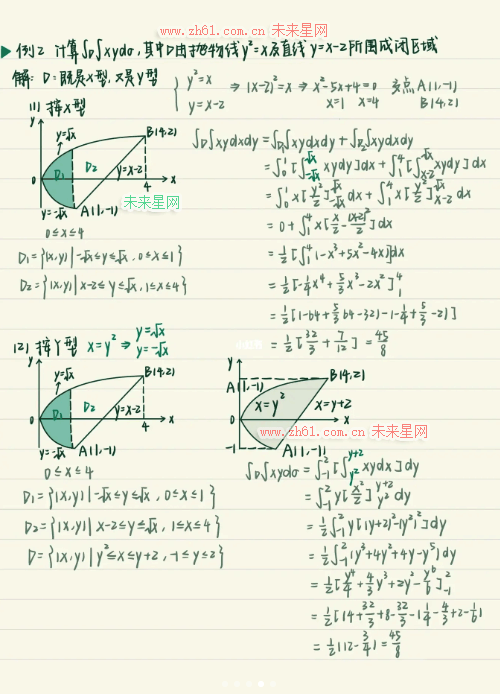 www.zh61.com.cn 未来星网
例2 计算∫D∫xydσ,其中D由抛物线y²=x及直线y=x-2所围成闭区域
解: D:既是X型,又是Y型 { y²=x y=x-2 ⇒ (x-2)²=x ⇒ x²-5x+4=0 x=1 x=4 交点 A(1,-1) B(4,2)
(1) 按X型
y y=√x B(4,2) D₁ D₂ y=x-2 0 4 x y=-√x A(1,-1)
未来星网
0≤x≤4
D₁={(x,y)|-√x≤y≤√x, 0≤x≤1}
D₂={(x,y)|x-2≤y≤√x, 1≤x≤4}
∫D∫xydxdy=∫D₁∫xydxdy+∫D₂∫xydxdy
=∫₀¹[∫_{-√x}^{√x} xydy]dx+∫₁⁴[∫_{x-2}^{√x} xydy]dx
=∫₀¹x[y²/2]_{-√x}^{√x}dx+∫₁⁴x[y²/2]_{x-2}^{√x}dx
=0+∫₁⁴x[x/2-(x-2)²/2]dx
=1/2[∫₁⁴(-x³+5x²-4x]dx
=1/2[-1/4x⁴+5/3x³-2x²]₁⁴
=1/2[(-64+5/3·64-32)-(-1/4+5/3-2)]
=1/2[32/3+7/12]=45/8
(2) 按Y型 x=y² ⇒ y=√x y=-√x
y y=√x B(4,2) D₁ D₂ y=x-2 0 4 x y=-√x A(1,-1)
y A(1,-1) B(4,2) x=y² x=y+2 0 x -1 A(1,-1)
www.zh61.com.cn 未来星网
0≤x≤4
D₁={(x,y)|-√x≤y≤√x, 0≤x≤1}
D₂={(x,y)|x-2≤y≤√x, 1≤x≤4}
D={(x,y)|y²≤x≤y+2, -1≤y≤2}
∫D∫xydσ=∫₋₁²[∫_{y²}^{y+2} xydx]dy
=∫₋₁²y[x²/2]_{y²}^{y+2}dy
=1/2∫₋₁²y[(y+2)²-(y²)²]dy
=1/2∫₋₁²(y³+4y²+4y-y⁵)dy
=1/2[y⁴/4+4/3y³+2y²-y⁶/6]₋₁²
=1/2[(4+32/3+8-32/3-(1/4-4/3+2-1/6)
=1/2(12-3/4)=45/8